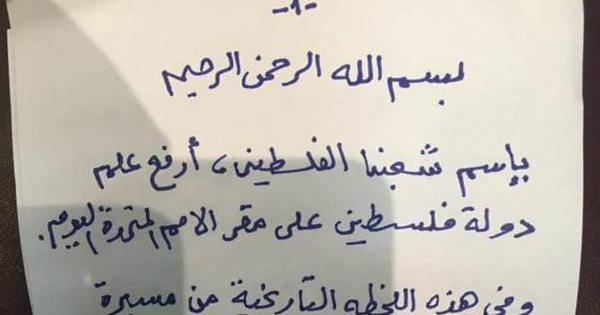 -١-
بسم الله الرحمن الرحيم
بإسم شعبنا الفلسطيني، أرفع علم
دولة فلسطين على مقر الامم المتحدة اليوم.
وفي هذه اللحظه التاريخية من مسيرة